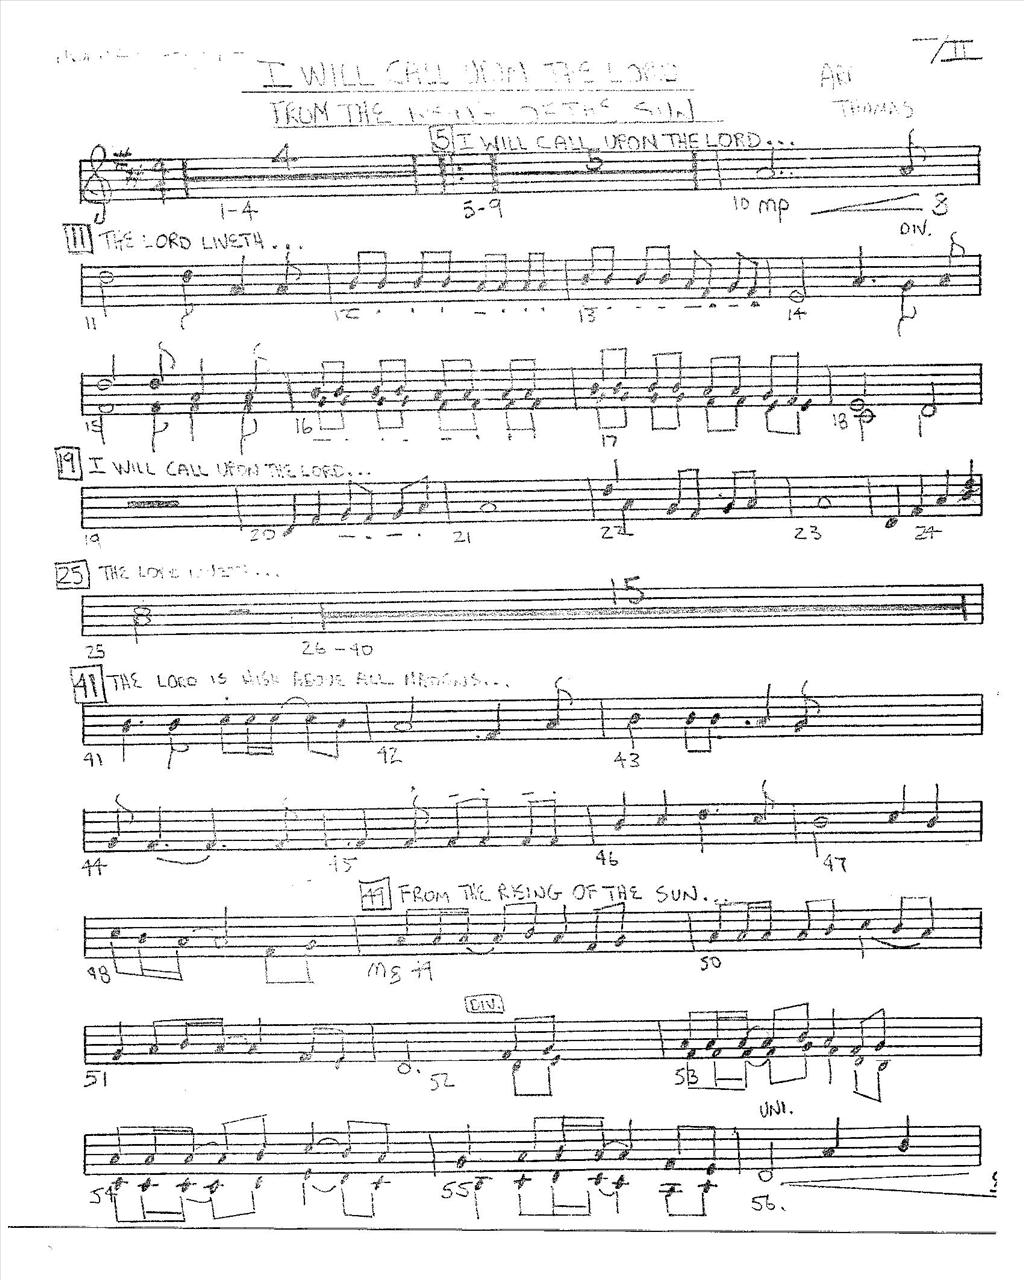 I WILL CALL UPON THE LORD
FROM THE OF THE SUN
ARR
THOMAS
/II
5 I WILL CALL UPON THE LORD...
4
4
4
5
1-4
5-9
10 mp
8
DIV.
11 THE LORD LIVETH...
11
12
13
14
15
16
17
18
19 I WILL CALL UPON THE LORD...
19
20
21
22
23
24
25 THE LORD LIVETH...
15
25
26-40
41 THE LORD IS HIGH ABOVE ALL NATIONS...
41
42
43
44
45
46
47
49 FROM THE RISING OF THE SUN...
48
49
50
DIV.
51
52
53
UNI.
54
55
56.